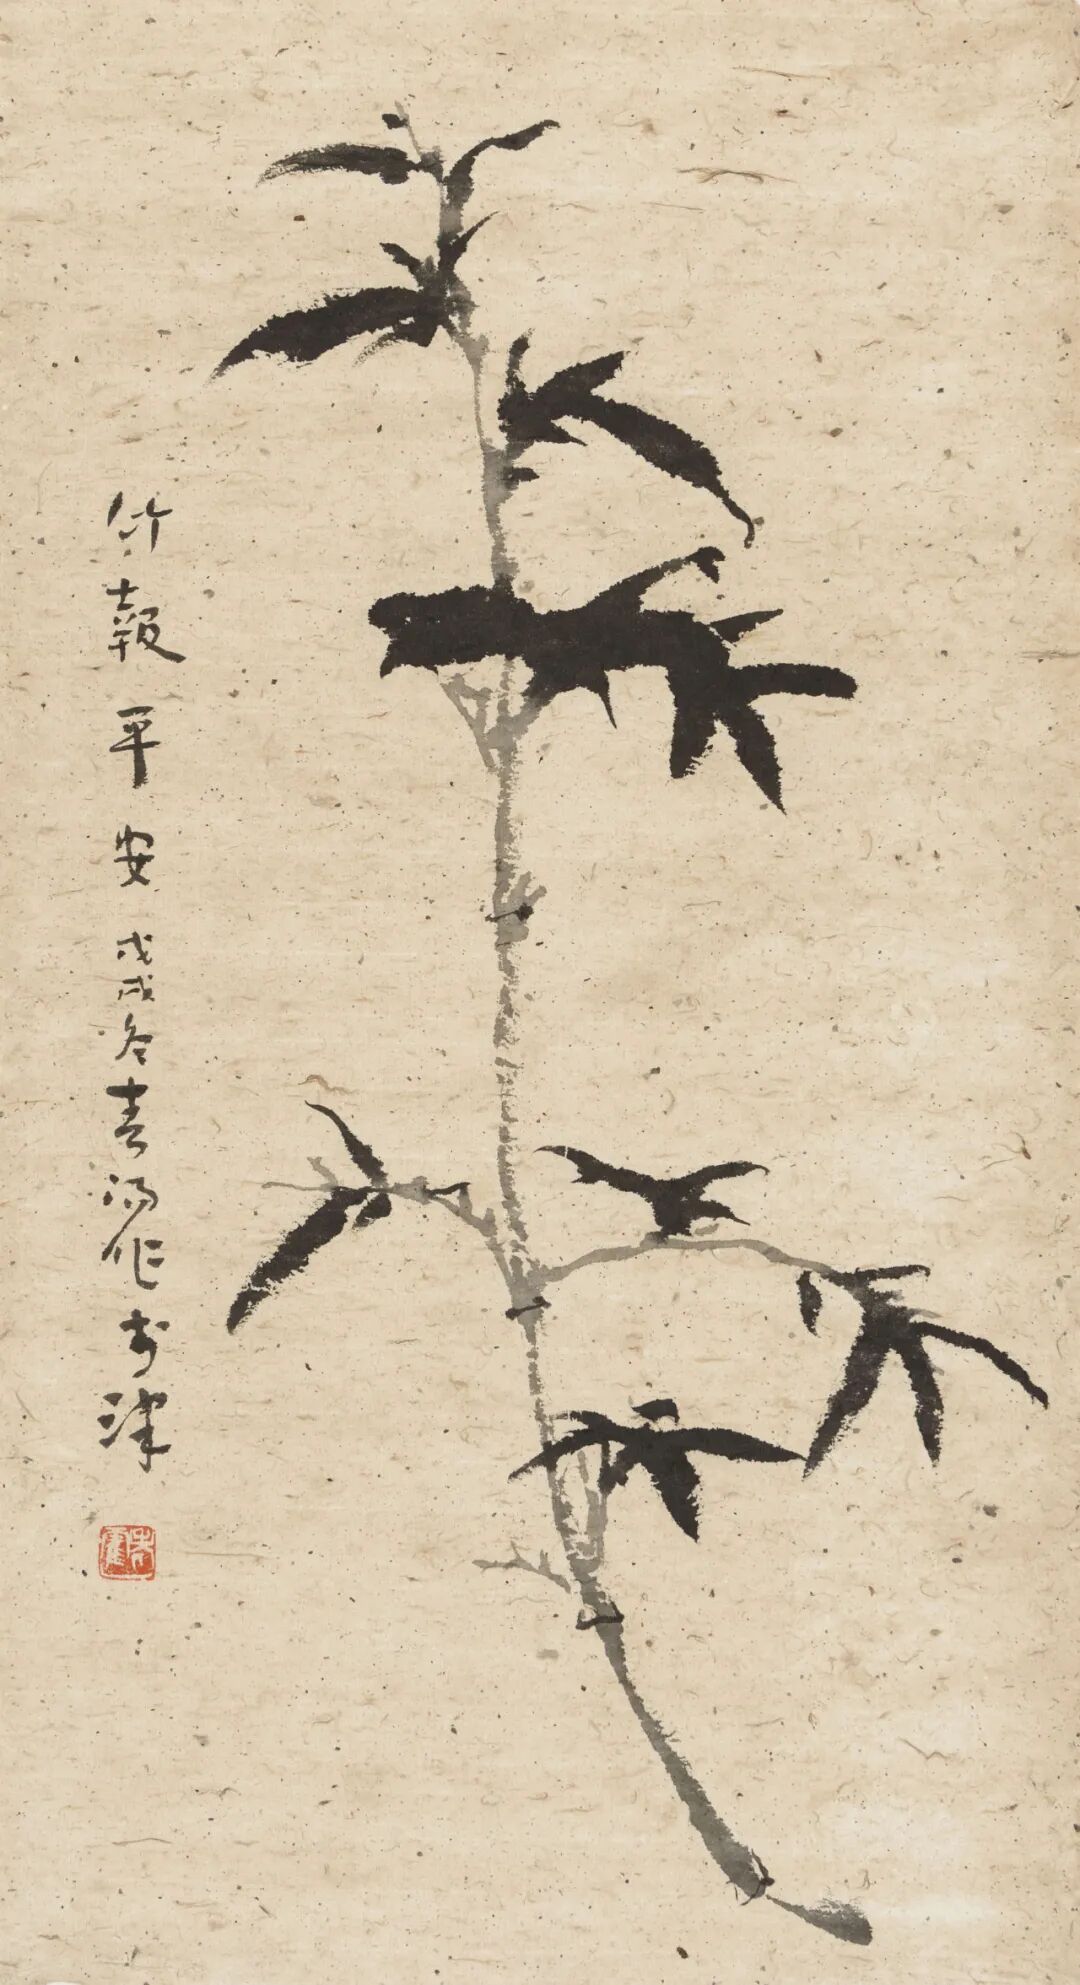 竹報平安戊戌冬春陽作於津